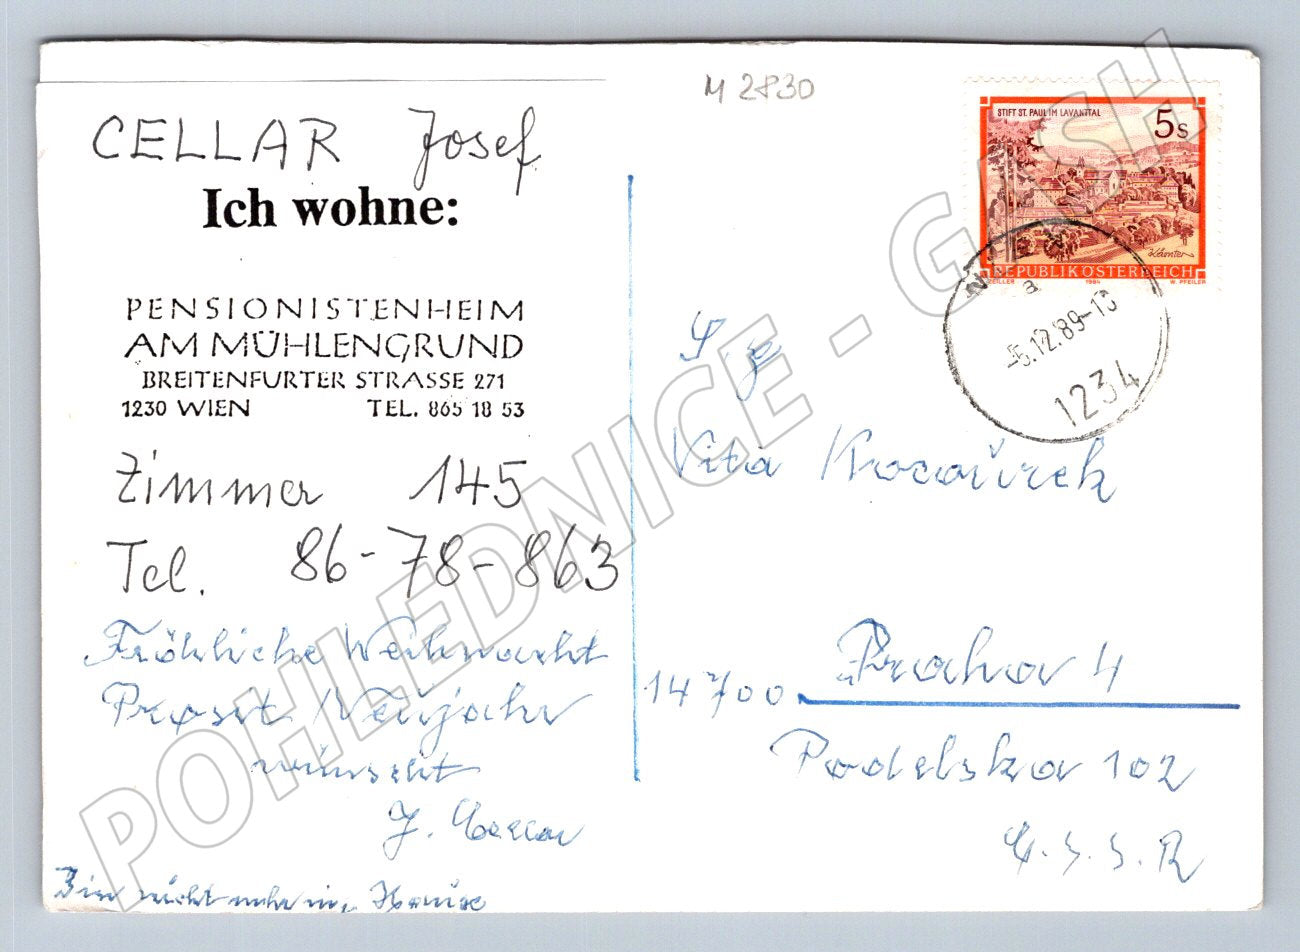 M 2830
CELLAR Josef
Ich wohne:
PENSIONISTENHEIM
AM MÜHLENGRUND
BREITENFURTER STRASSE 271
1230 WIEN TEL. 865 18 53
Zimmer 145
Tel. 86-78-863
Fröhliche Weihnacht
Prosit Neujahr
wünscht
J. Cellar
Bin nicht mehr in
STIFT ST. PAUL IM LAVANTTAL
5 S
Kärnten
REPUBLIK ÖSTERREICH
ZEILLER 1984 W. PFEILER
-5.12.89-10
a
1234
Vita Kocourek
14700 Praha 4
Podolska 102
Č.S.S.R
POHLEDNICE - GASH